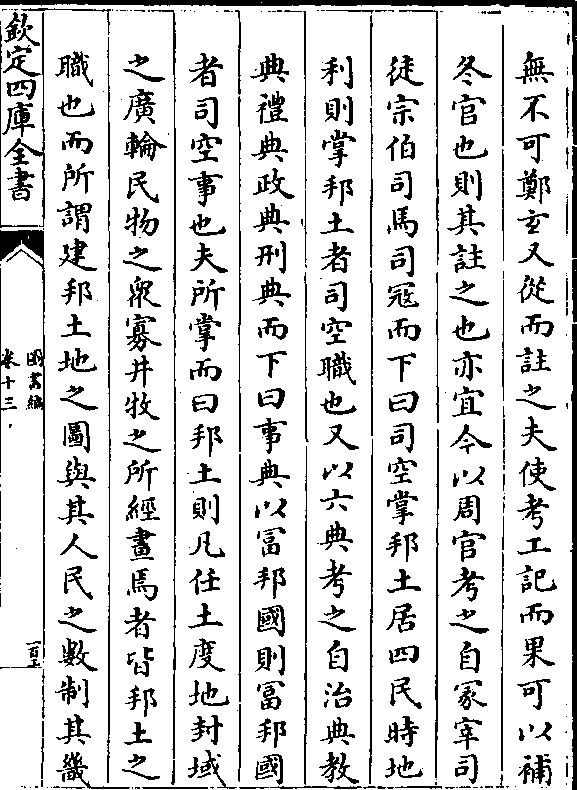 無不可鄭玄又從而註之夫使考工記而果可以補
冬官也則其註之也亦宜今以周官考之自冡宰司
徒宗伯司馬司冦而下曰司空掌邦土居四民時地
利則掌邦土者司空職也又以六典考之自治典教
典禮典政典刑典而下曰事典以冨邦國則冨邦國
者司空事也夫所掌而曰邦土則凡任土度地封域
之廣輪民物之衆寡井牧之所經畫焉者皆邦土之
職也而所謂建邦土地之圖與其人民之數制其畿
欽定四庫全書
圖書編
卷十三